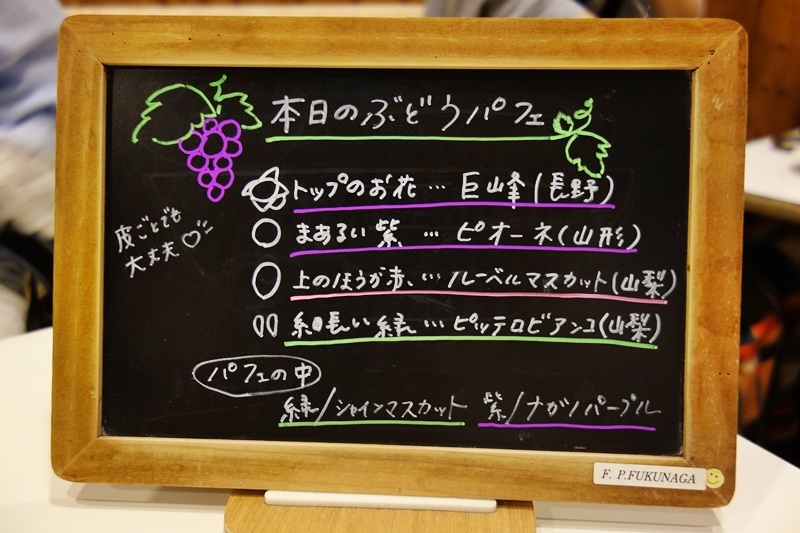 本日のぶどうパフェ
トップのお花…巨峰(長野)
まあるい紫…ピオーネ(山形)
上のほうが赤い…ルーベルマスカット(山梨)
細長い緑…ピッテロビアンコ(山梨)
皮ごとでも
大丈夫♡
パフェの中
緑/シャインマスカット 紫/ナガノパープル
F. P.FUKUNAGA